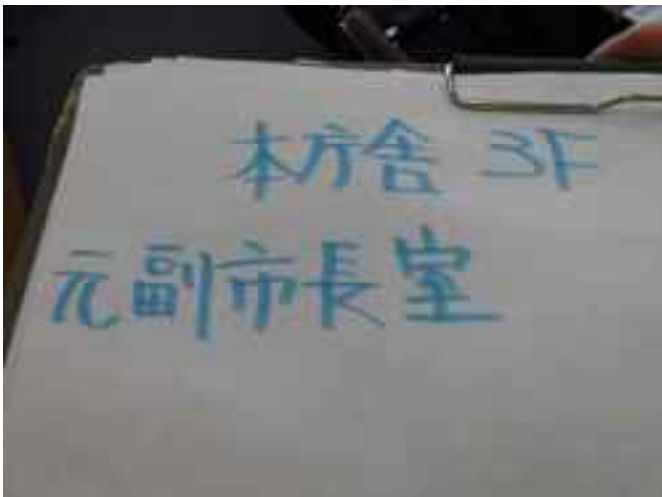 本庁舎 3F
元副市長室